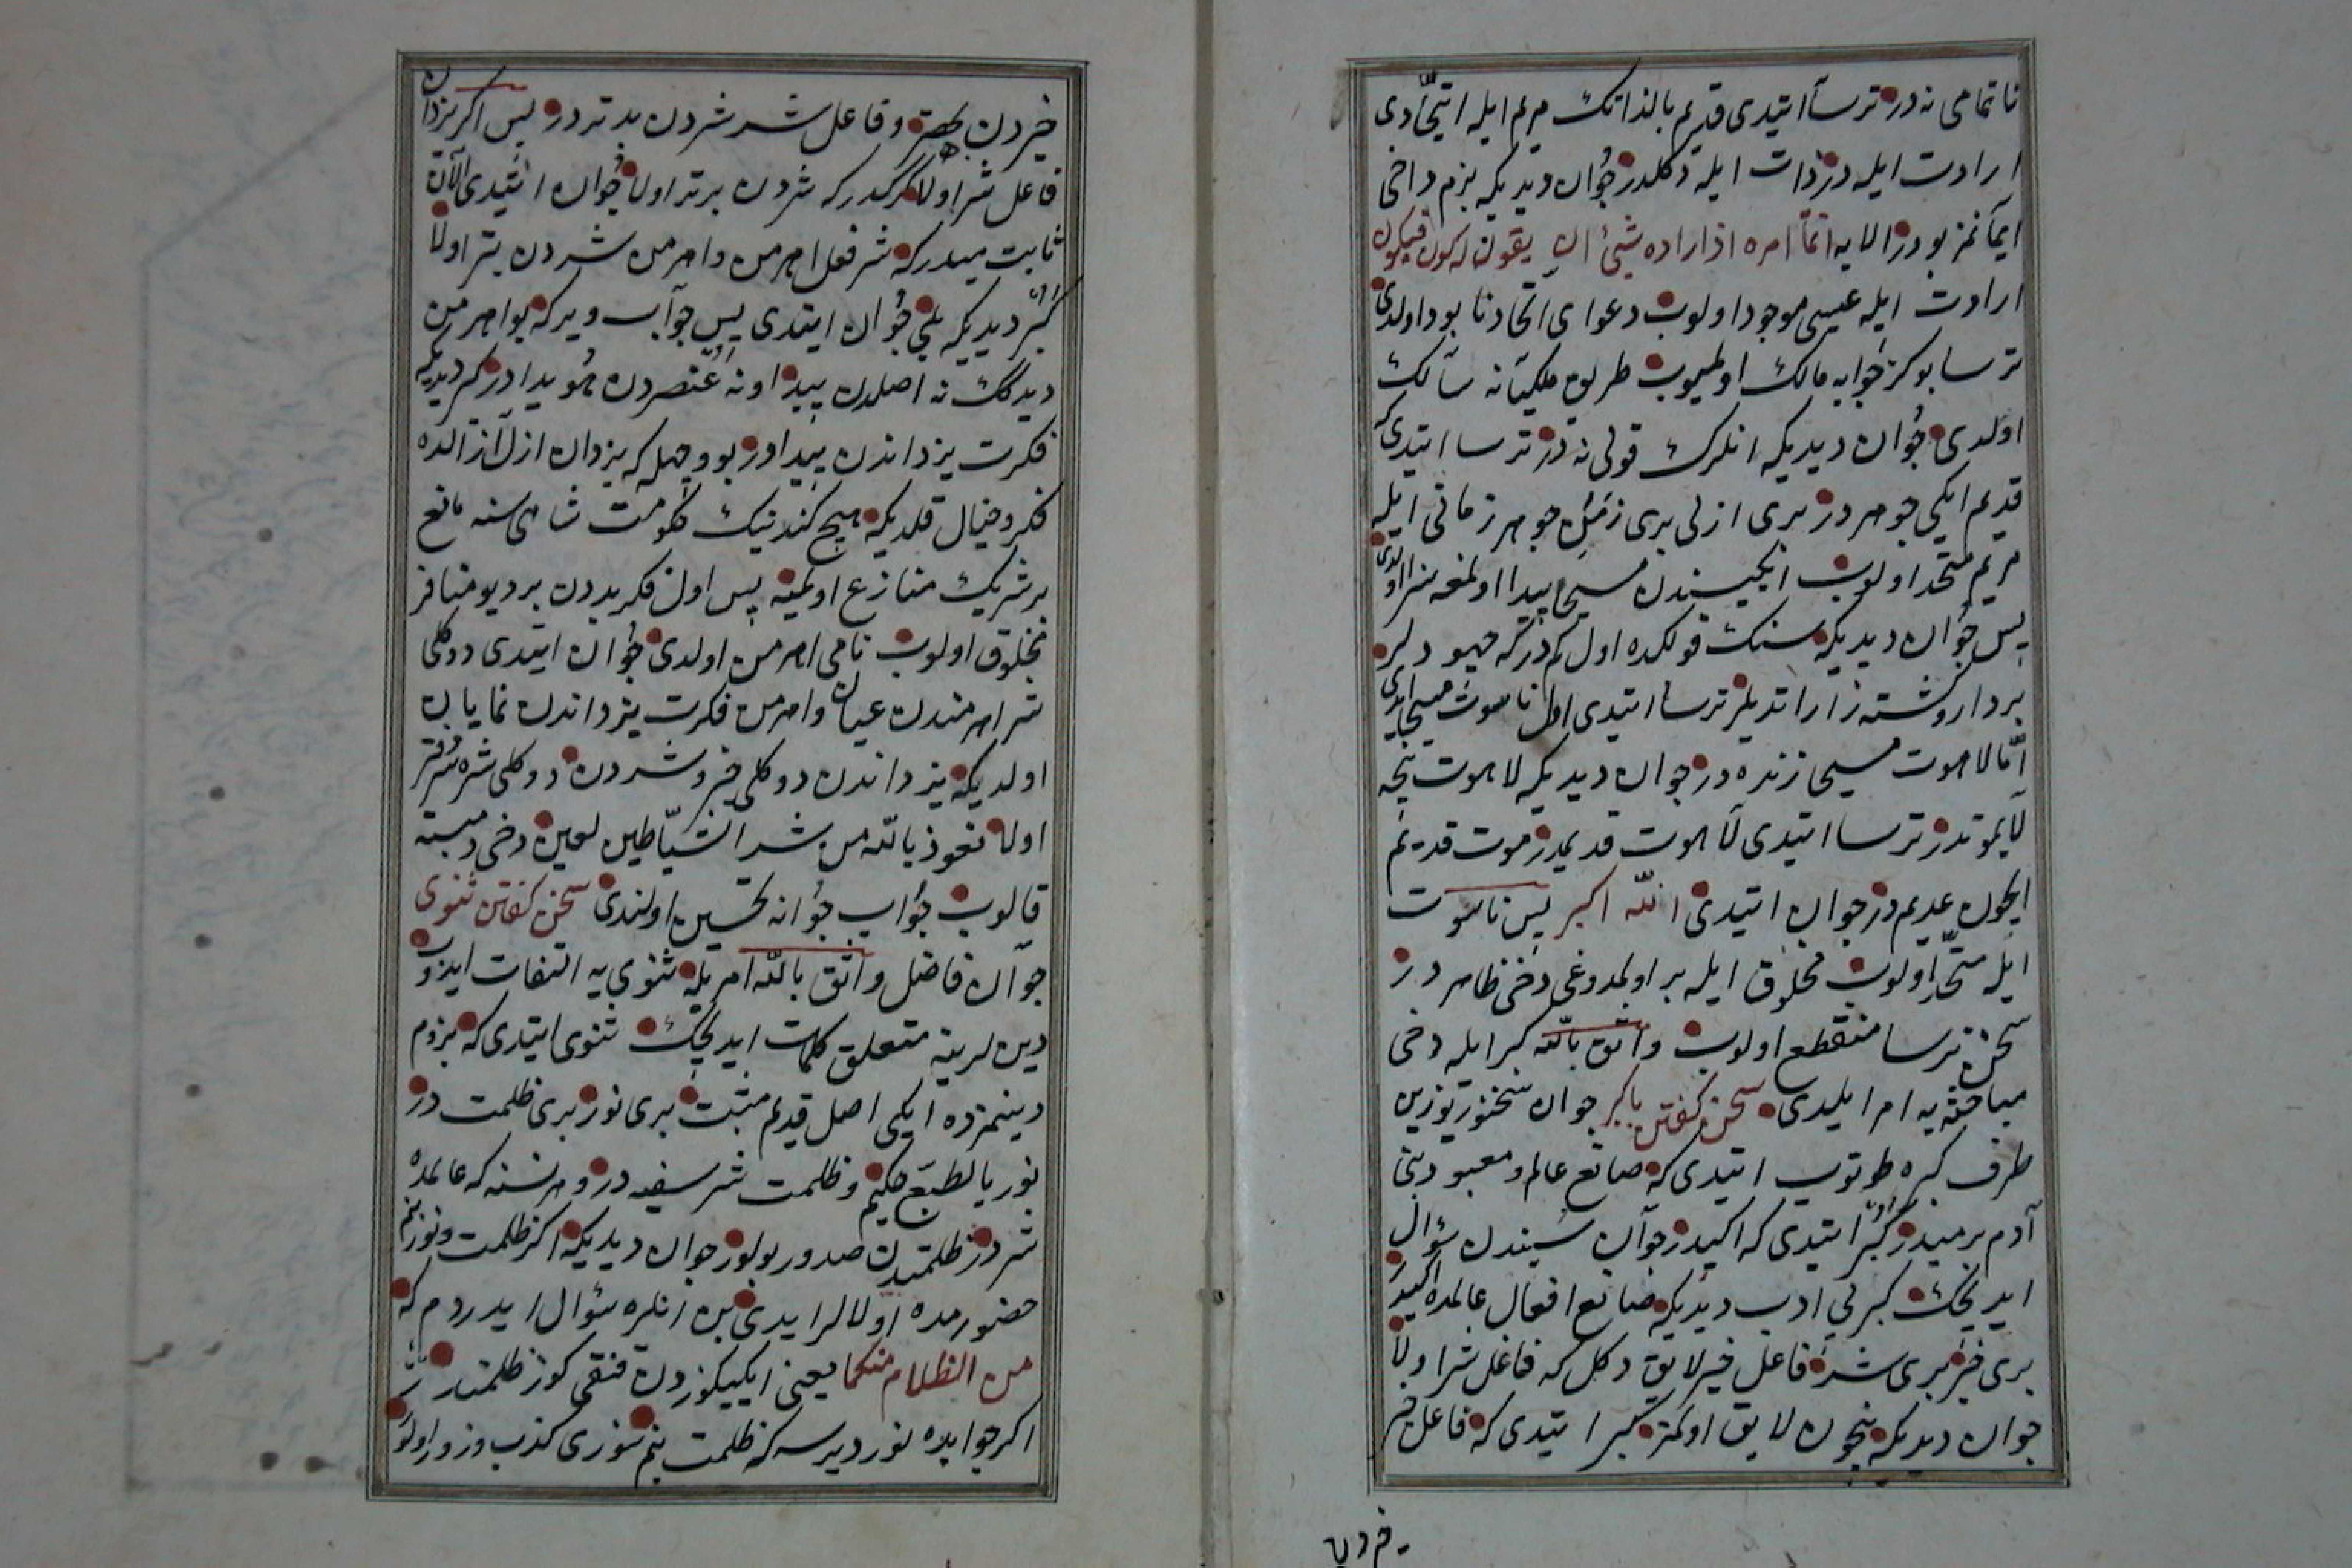 ناتمامی نه در ترسا ایتدی قدیم بالذاتک مریم ایله اتحادی
ارادت ایله در ذات ایله دکلدر جوان دیدیکه بزم داخی
ایمانمز بودر الایه انما امره اذا اراده شیئ ان یقول له کون فیکون
ارادت ایله عیسی موجود اولوب دعوای اتحاد نابود اولدی
ترسا بو کز جوابه مالک اولمیوب طریق ملکیانه سالک
اولدی جوان دیدیکه انلرک قولی نه در ترسا ایتدی که
قدیم ایکی جوهر در بری ازلی بری زمنی جوهر زمانی ایله
مریم متحد اولوب ایکیسندن مسیح پیدا اولمغه سزا اولدی
پس جوان دیدیکه سنک قولکده اول کم در که جهودلر
بردار و کشته زار ایتدیلر ترسا ایتدی اول ناسوت مسیح ایدی
اما لاهوت مسیح زنده در جوان دیدیکه لاهوت نیجه
لایموتدر ترسا ایتدی لاهوت قدیمدر موت قدیم
ایچون عدیم در جوان ایتدی الله اکبر پس ناسوت
ایله متحد اولوب مخلوق ایله بر اولمدوغی دخی ظاهر در
سخن ترسا منقطع اولوب واثق بالله کبر ایله دخی
مباحثه یه امر ایلدی سخن کفتن با کبر جوان سخنور یوزین
طرف کبره طوتوب ایتدی که صانع عالم و معبود بنی
آدم بر میدر کبر ایتدی که ایکیدر جوان سیندن سؤال
ایدیجک کبر بی ادب دیدیکه صانع افعال عالمده ایکیدر
بری خیر بری شر فاعل خیر لایق دکل که فاعل شر اولا
جوان دیدیکه نیچون لایق اولمز کبر ایتدی که فاعل خیر
خیردن
خیردن بهتر و فاعل شر شردن بدتر در پس اکر یزدان
فاعل شر اولا کرکدر که شردن برتر اولا جوان ایتدی الآن
ثابت میدر که شر فعل اهرمن و اهرمن شردن بتر اولا
کبر دیدیکه بلی جوان ایتدی پس جواب ویر که بو اهرمن
دیدکک نه اصلدن پیدا و نه عنصردن هویدادر کبر دیدیکه
فکرت یزداندن پیدادر بو وجهله که یزدان ازل آزالده
فکر و خیال قلدیکه هیچ کندینک حکومت شاهی سنه مانع
بر شریک منازع اولمیه پس اول فکر بددن بر دیو منافر
مخلوق اولوب نامی اهرمن اولدی جوان ایتدی دوکلی
شر اهرمندن عیان و اهرمن فکرت یزداندن نمایان
اولدیکه یزداندن دوکلی خیر و شردن دوکلی شره شرتر
اولا نعوذ بالله من شر الشیاطین لعین دخی دمبسته
قالوب جواب جوانه تحسین اولندی سخن کفتن ثنوی
جوان فاضل واثق بالله امریله ثنوی یه التفات ایدوب
دین لرینه متعلق کلمات ایدیجک ثنوی ایتدی که بزوم
دینمزده ایکی اصل قدیم مثبت بری نور بری ظلمت در
نور بالطبع حکیم و ظلمت شر سفیه در و هر نسنه که عالمده
شر در ظلمتدن صدور بولور جوان دیدیکه اکر ظلمت و نور بنم
حضورمده اولالر ایدی بن انلره سؤال ایدردم که
من الظلام منکما یعنی ایکیکوزدن قنقی کوز ظلمتدر
اکر جوابده نور دیرسه که ظلمت بنم سوزی کذب و زور اولور